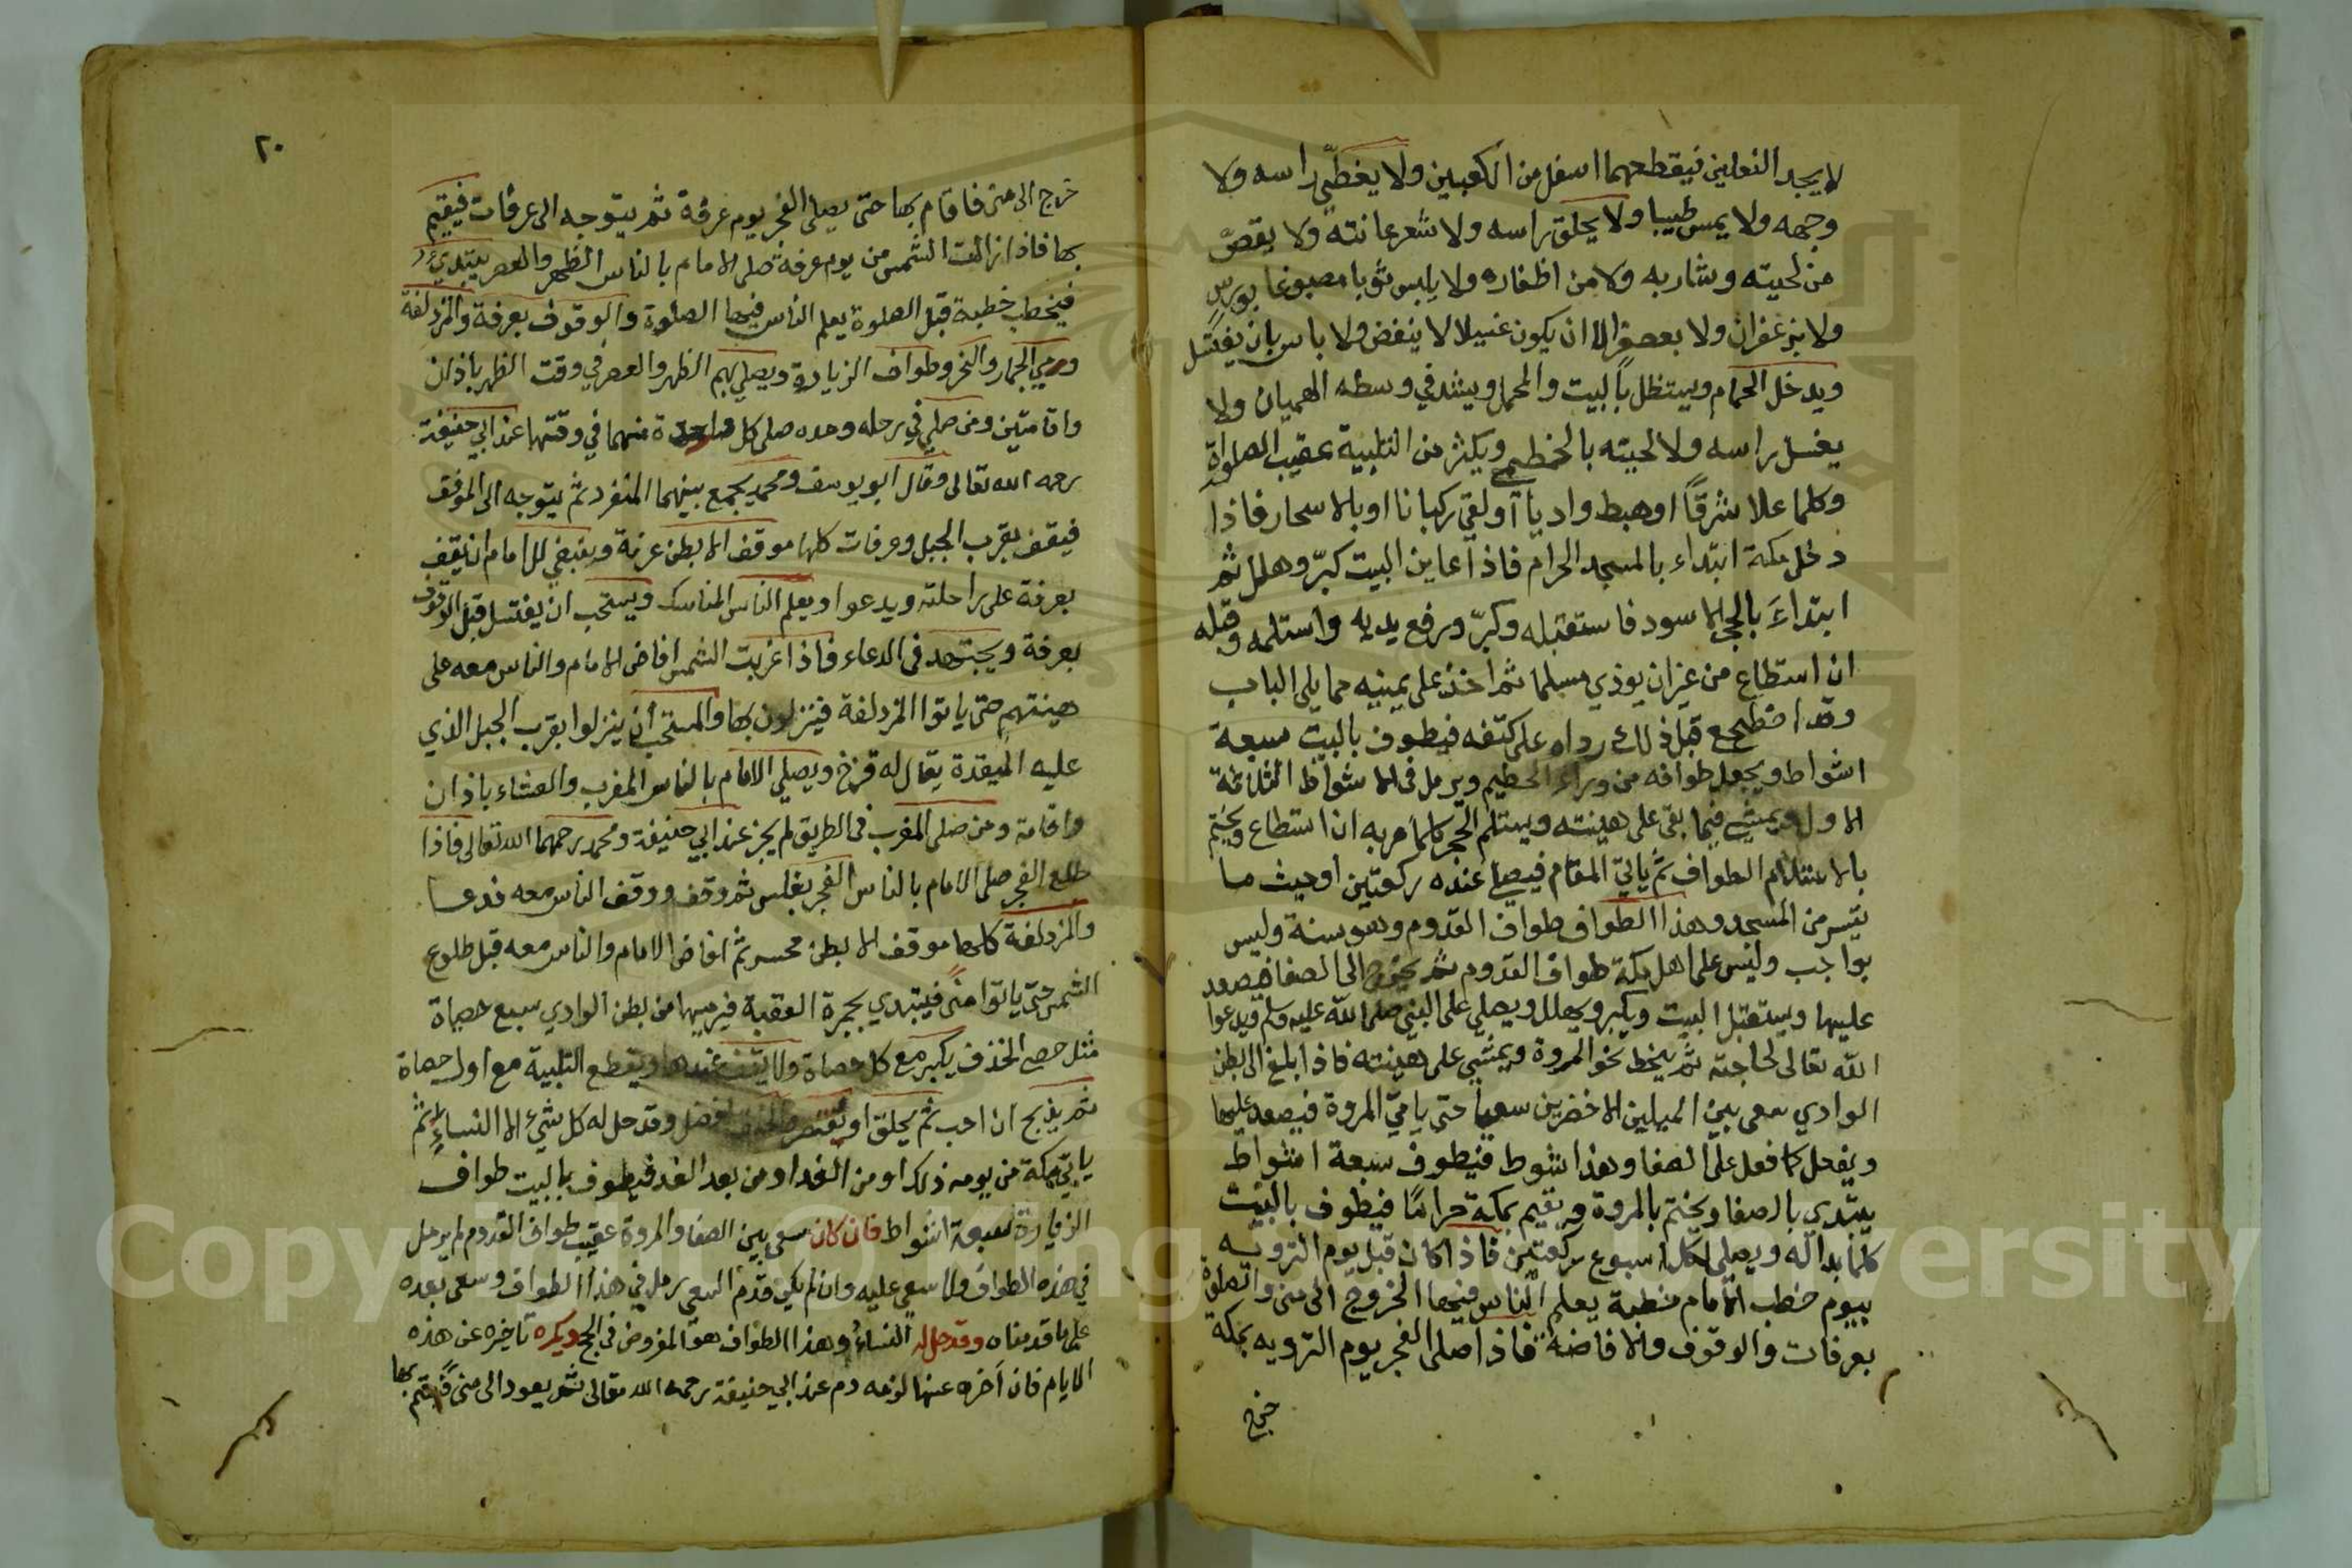 لا يجد النعلين فيقطعهما اسفل من الكعبين ولا يغطّي راسه ولا
وجهه ولا يمس طيبا ولا يحلق راسه ولا شعر عانته ولا يقصّ
من لحيته وشاربه ولا من اظفاره ولا يلبس ثوبا مصبوغا بورسٍ
ولا بزعفران ولا بعصفر الا ان يكون غسيلا لا ينفض ولا باس بان يغتسل
ويدخل الحمام ويستظل بالبيت والمحمل ويشد في وسطه الهميان ولا
يغسل راسه ولا لحيته بالخطمي ويكثر من التلبية عقيب الصلواة
وكلما علا شرقًا او هبط واديا او لقي ركبانا او بالاسحار فاذا
دخل مكة ابتداء بالمسجد الحرام فاذا عاين البيت كبّر وهلل ثم
ابتداءَ بالحجر الاسود فاستقبله وكبّر ورفع يديه واستلمه وقبله
ان استطاع من غير ان يوذي مسلما ثم اخذ على يمينيه مما يلى الباب
وقد اضطجع قبل ذلك رداه على كتفه فيطوف بالبيت سبعة
اشواط ويجعل طوافه من وراء الحطيم ويرمل فى الاشواط الثلاثة
الاول ويمشي فيما بقى على هينته ويستلم الحجر كلما مر به ان استطاع ويختم
بالاستلام الطواف ثم ياتي المقام فيصلي عنده ركعتين او حيث ما
تيسر من المسجد وهذا الطواف طواف القدوم وهو سنة وليس
بواجب وليس على اهل مكة طواف القدوم ثم يخرج الى الصفا فيصعد
عليها ويستقبل البيت ويكبر ويهلل ويصلي على النبي صلى الله عليه وسلم ويدعوا
الله تعالى لحاجته ثم ينحط نحو المروة ويمشي على هينته فاذا بلغ الى بطن
الوادي سعى بين الميلين الاخضرين سعيا حتى ياتي المروة فيصعد عليها
ويفعل كما فعل على الصفا وهذا شوط فيطوف سبعة اشواط
يبتدي بالصفا ويختم بالمروة ويقيم بمكة حرامًا فيطوف بالبيت
كلما بدا له ويصلي لكل اسبوع ركعتين فاذا كان قبل يوم الترويه
بيوم خطب الامام خطبة يعلم الناس فيها الخروج الى منى والصلوة
بعرفات والوقوف والافاضة فاذا صلى الفجر يوم الترويه بمكة
خرج
٢٠
خرج الى منى فاقام بها حتى يصلى الفجر يوم عرفة ثم يتوجه الى عرفات فيقيم
بها فاذا زالت الشمس من يوم عرفة صلى الامام بالناس الظهر والعصر يبتدي
فيخطب خطبة قبل الصلوة يعلم الناس فيها الصلوة والوقوف بعرفة والمزدلفة
ورمي الجمار والنحر وطواف الزيارة ويصلي بهم الظهر والعصر في وقت الظهر باذان
واقامتين ومن صلي في رحله وحده صلى كل واحدة منهما في وقتها عند ابي حنيفة
رحمه الله تعالى وقال ابو يوسف ومحمد يجمع بينهما المنفرد ثم يتوجه الى الموقف
فيقف بقرب الجبل وعرفات كلها موقف الا بطن عرنة وينبغي للامام ان يقف
بعرفة على راحلته ويدعوا ويعلم الناس المناسك ويستحب ان يغتسل قبل الوقوف
بعرفة ويجتهد فى الدعاء فاذا غربت الشمس افاض الامام والناس معه على
هينتهم حتى ياتوا المزدلفة فينزلون بها والمستحب ان ينزلوا بقرب الجبل الذي
عليه الميقدة يقال له قزح ويصلي الامام بالناس المغرب والعشاء باذان
واقامة ومن صلى المغرب فى الطريق لم يجز عند ابي حنيفة ومحمد رحمهما الله تعالى فاذا
طلع الفجر صلى الامام بالناس الفجر بغلس ثم وقف ووقف الناس معه فدعا
والمزدلفة كلها موقف الا بطن محسر ثم افاض الامام والناس معه قبل طلوع
الشمس حتى ياتوا منًى فيبتدي بجمرة العقبة فيرميها من بطن الوادي سبع حصاة
مثل حصى الخذف يكبر مع كل حصاة ولا يقف عندها ويقطع التلبية مع اول حصاة
ثم يذبح ان احب ثم يحلق او يقصر والحلق افضل وقد حل له كل شيء الا النساء ثم
ياتي مكة من يومه ذلك او من الغد او من بعد الغد فيطوف بالبيت طواف
الزيارة سبعة اشواط فان كان سعى بين الصفا والمروة عقيب طواف القدوم لم يرمل
في هذه الطواف ولا سعي عليه وان لم يكن قدم السعي رمل في هذا الطواف وسعى بعده
على ما قدمناه وقد حل له النساء وهذا الطواف هو المفروض فى الحج ويكره تاخيره عن هذه
الايام فان اخره عنها لزمه دم عند ابي حنيفة رحمه الله تعالى ثم يعود الى منى فيقيم بها
Copyright © King Saud University